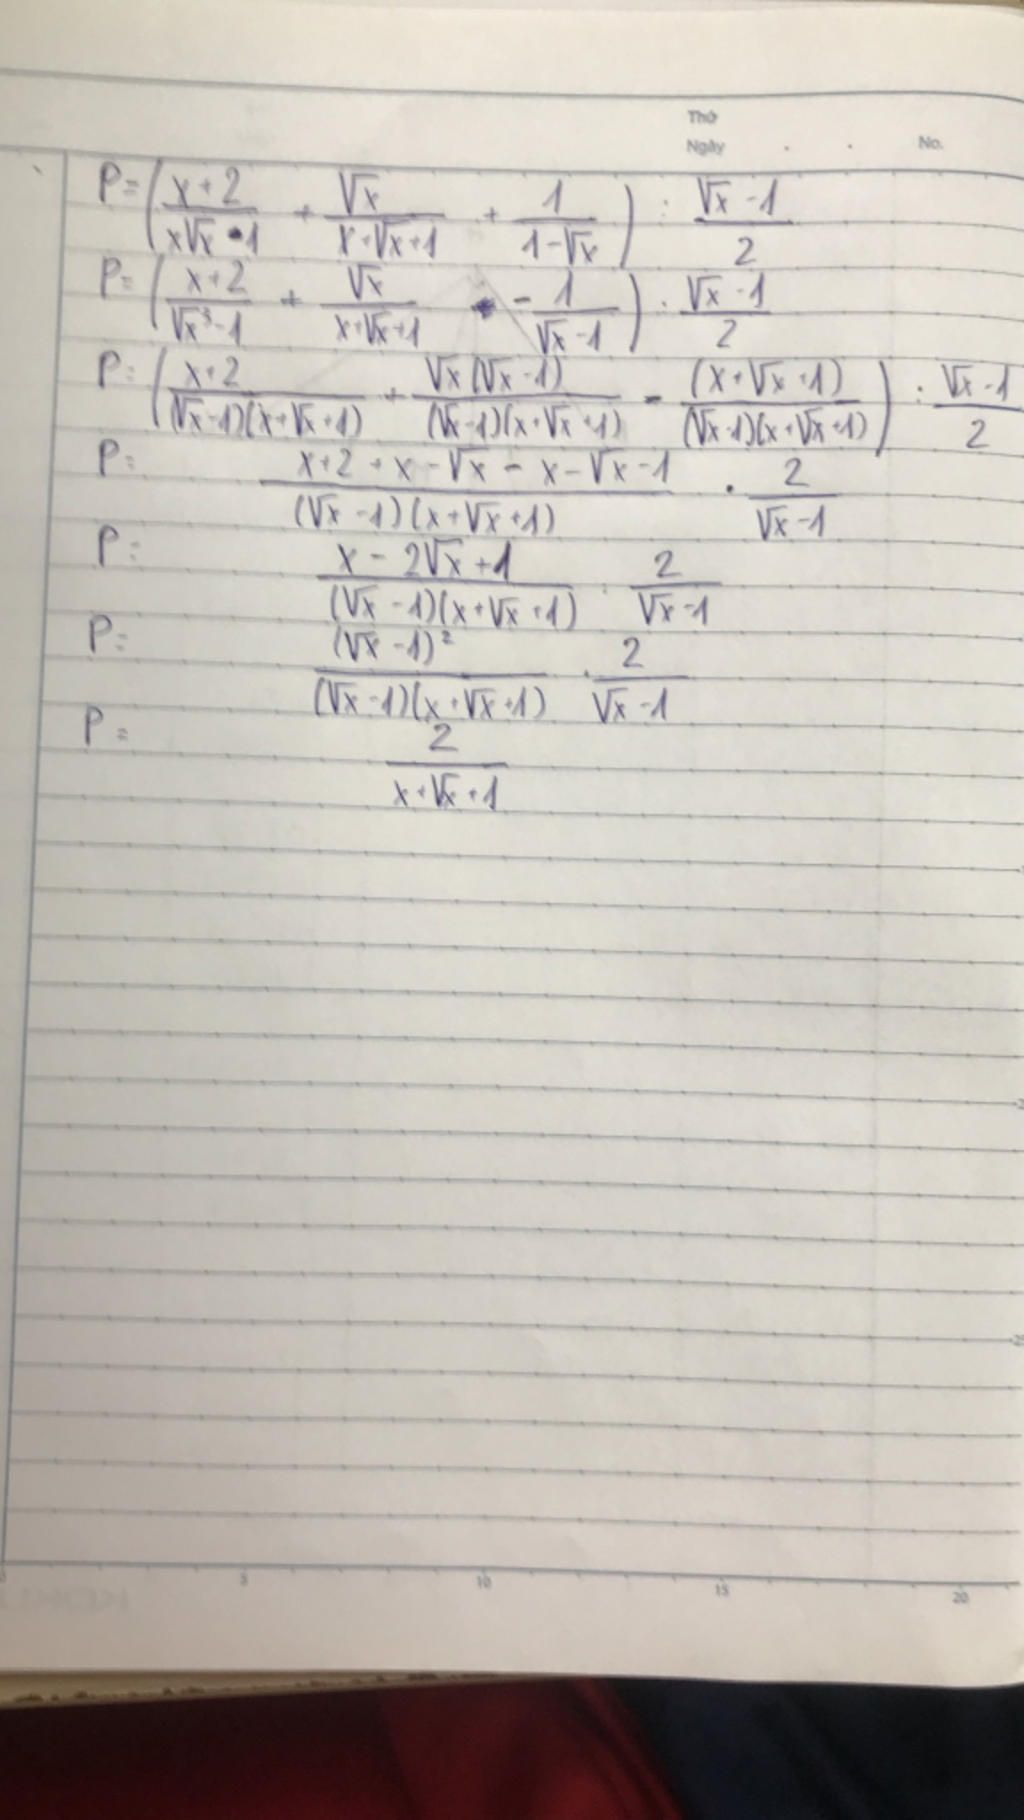 Thứ
Ngày . . No.
P = ( (x+2)/(x√x - 1) + √x/(x+√x+1) + 1/(1-√x) ) : (√x - 1)/2
P = ( (x+2)/(√x³ - 1) + √x/(x+√x+1) - 1/(√x - 1) ) : (√x - 1)/2
P = ( (x+2)/((√x-1)(x+√x+1)) + √x(√x-1)/((√x-1)(x+√x+1)) - (x+√x+1)/((√x-1)(x+√x+1)) ) : (√x - 1)/2
P = (x+2+x-√x-x-√x-1)/((√x-1)(x+√x+1)) . 2/(√x-1)
P = (x-2√x+1)/((√x-1)(x+√x+1)) . 2/(√x-1)
P = (√x-1)²/((√x-1)(x+√x+1)) . 2/(√x-1)
P = 2/(x+√x+1)
5 10 15 20